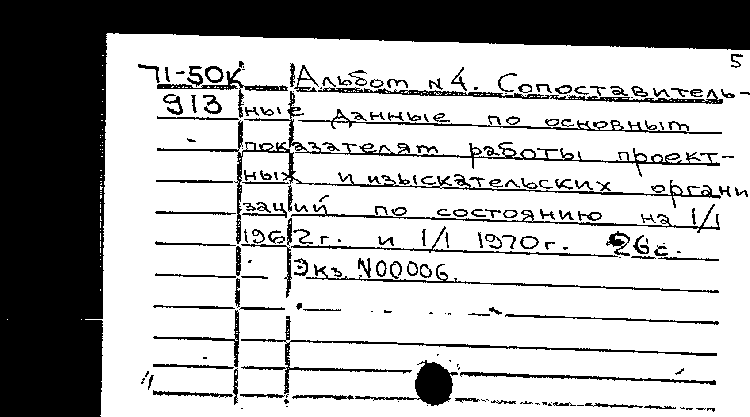 5
71-50К Альбом N4. Сопоставитель-
913 ные данные по основным
показателям работы проект-
ных и изыскательских органи
заций по состоянию на 1/1
1962г. и 1/1 1970г. 26с.
Экз. N00006.